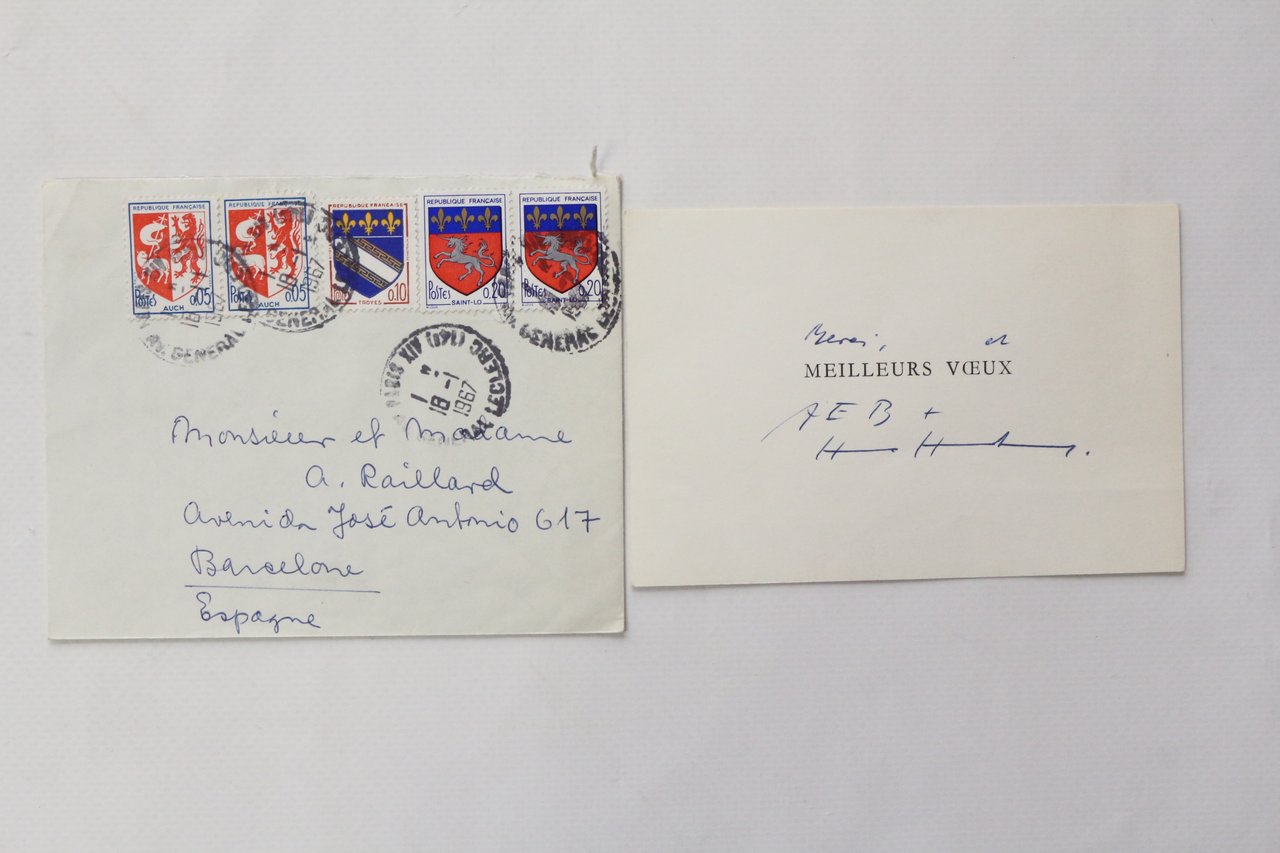 REPUBLIQUE FRANÇAISE
POSTES 0.05
AUCH
REPUBLIQUE FRANÇAISE
POSTES 0.05
AUCH
REPUBLIQUE FRANÇAISE
0.10
TROYES
REPUBLIQUE FRANÇAISE
POSTES 0.20
SAINT-LO
REPUBLIQUE FRANÇAISE
POSTES 0.20
SAINT-LO
18 -1
1967
GENERAL
GENERAL
PARIS XIV (14e)
18 -1
1967
GENERAL LECLERC
Monsieur et Madame
A. Raillard
Avenida José Antonio 617
Barcelone
Espagne
Merci, et
MEILLEURS VŒUX
AEB +